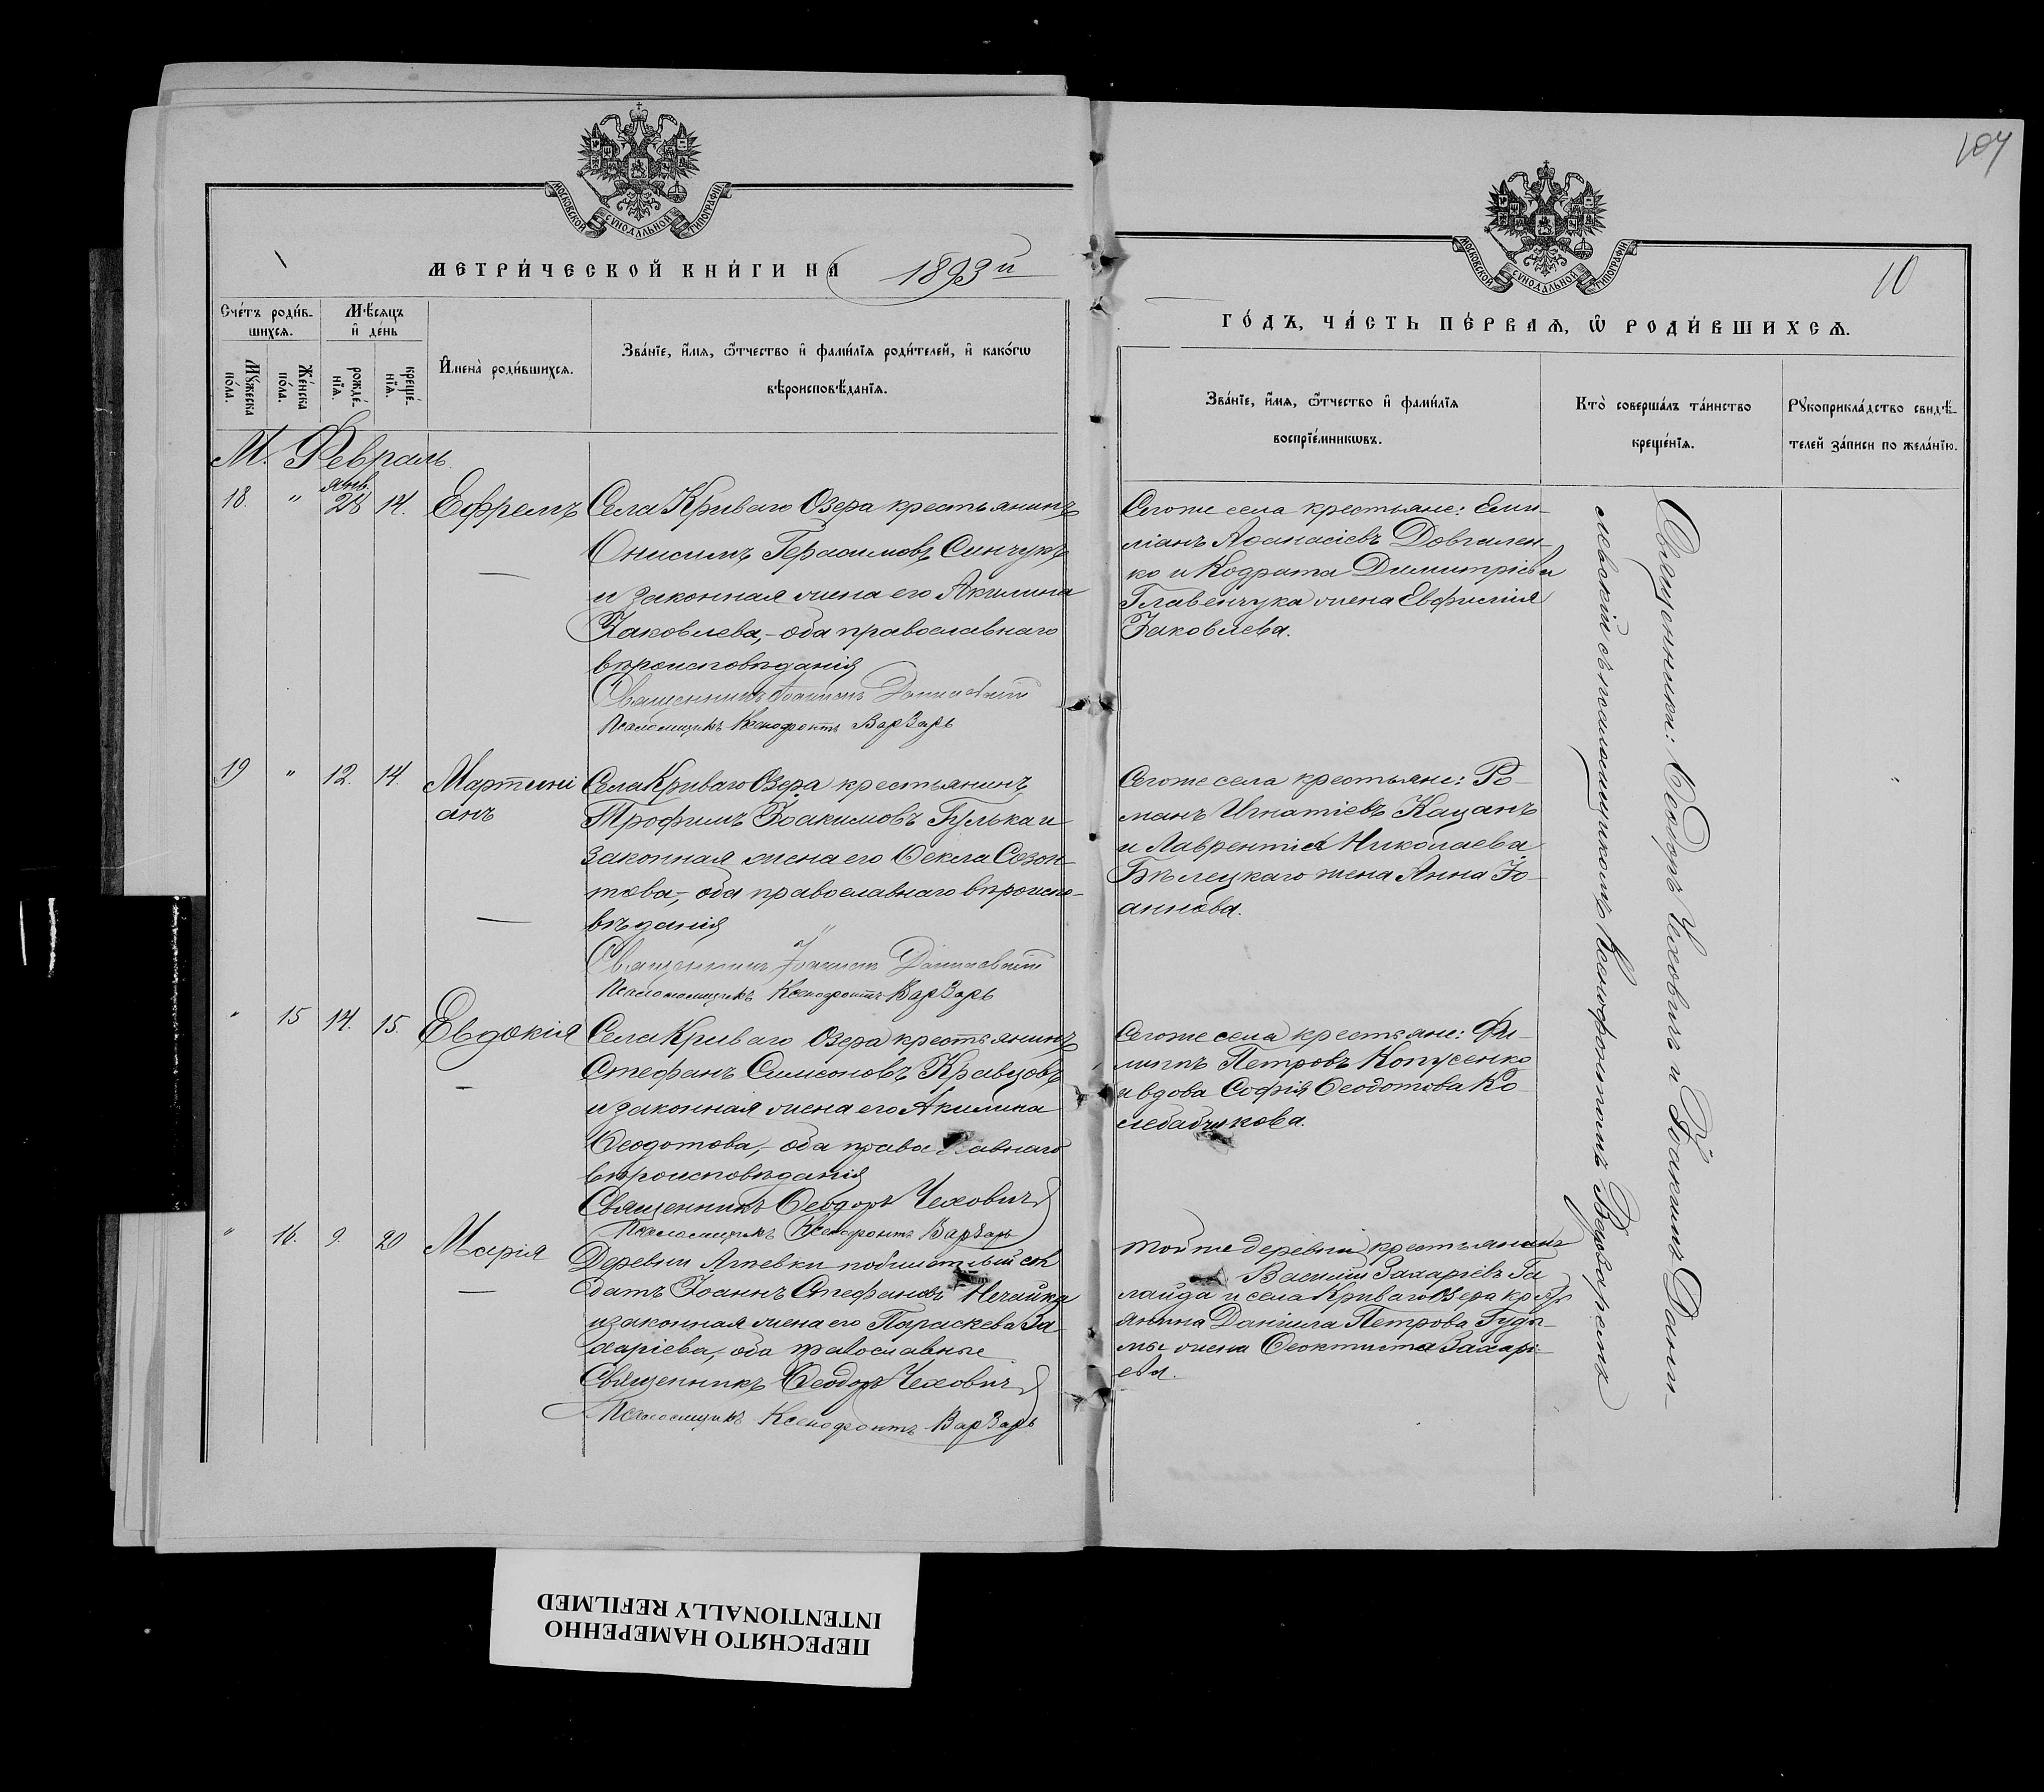 МОСКОВСКОЙ СѴНОДАЛЬНОЙ ТИПОГРАФІИ
МЕТРИ́ЧЕСКОЙ КНИ́ГИ НА 1893й
Сче́тъ роди́в-
шихсѧ.
Мѣ́сѧцъ
и҆ де́нь
Мꙋ́жеска
по́ла.
Же́нска
по́ла.
рожде́-
нїѧ.
креще́-
нїѧ.
И҆мена̀ роди́вшихсѧ.
Зва́нїе, и҆́мѧ, ѻ҆́тчество и҆ фами́лїѧ роди́телей, и҆ како́гѡ
вѣроисповѣ́данїѧ.
М. Февраль.
18. " янв. 28 14. Ефремъ
Села Криваго Озера крестьянинъ
Онисимъ Герасимовъ Синчукъ
и законная жена его Акилина
Іаковлева,- оба православнаго
вѣроисповѣданія
Священникъ Іоакимъ Данилевскій
Псаломщикъ Ксенофонтъ Варзарь
19 " 12. 14. Мартині
анъ
Села Криваго Озера крестьянинъ
Трофимъ Іоакимовъ Гулька и
законная жена его Ѳекла Созон-
това,- оба православнаго вѣроиспо-
вѣданія
Священникъ Іоакимъ Данилевскій
Псаломщикъ Ксенофонтъ Варзарь
" 15 14. 15. Евдокія
Села Криваго Озера крестьянинъ
Стефанъ Симеоновъ Кравцовъ
и законная жена его Акилина
Ѳеодотова,- оба православнаго
вѣроисповѣданія
Священникъ Ѳеодоръ Чеховичъ
Псаломщикъ Ксенофонтъ Варзарь
" 16. 9. 20 Марія
Деревни побилетный сол
датъ Іоаннъ Стефановъ Нечайка
и законная жена его Параскева За
харіева,- оба православные
Священникъ Ѳеодоръ Чеховичъ
Псаломщикъ Ксенофонтъ Варзарь
107
МОСКОВСКОЙ СѴНОДАЛЬНОЙ ТИПОГРАФІИ
10
ГО́ДЪ, ЧА́СТЬ ПЕ́РВАѦ, Ѡ҆ РОДИ́ВШИХСѦ.
Зва́нїе, и҆́мѧ, ѻ҆́тчество и҆ фами́лїѧ
воспрїе́мникѡвъ.
Кто̀ соверша́лъ та́инство
креще́нїѧ.
Рꙋкоприкла́дство свидѣ́-
телей за́писи по жела́нїю.
Тогоже села крестьяне: Еми-
ліанъ Аѳанасіевъ Довгален-
ко и Кодрата Димитріева
Главенчука жена Евфимія
Іаковлева.
Тогоже села крестьяне: Ро-
манъ Игнатіевъ Кацанъ
и Лаврентія Николаева
Бѣлецкаго жена Анна Іо-
аннова.
Тогоже села крестьяне: Фи-
липпъ Петровъ Копусенко
и вдова Софія Ѳеодотова Ко
лебабчукова.
Той же деревни крестьянинъ
Василій Захаріевъ Га
лайда и села Криваго Озера крест
янина Даніила Петрова Гуды-
мы жена Ѳеоктиста Захарі-
ева.
Священники: Ѳеодоръ Чеховичъ и Іоакимъ Дани-
левскій съ псаломщикомъ Ксенофонтомъ Варзаремъ
ПЕРЕСНЯТО НАМЕРЕННО
INTENTIONALLY REFILMED